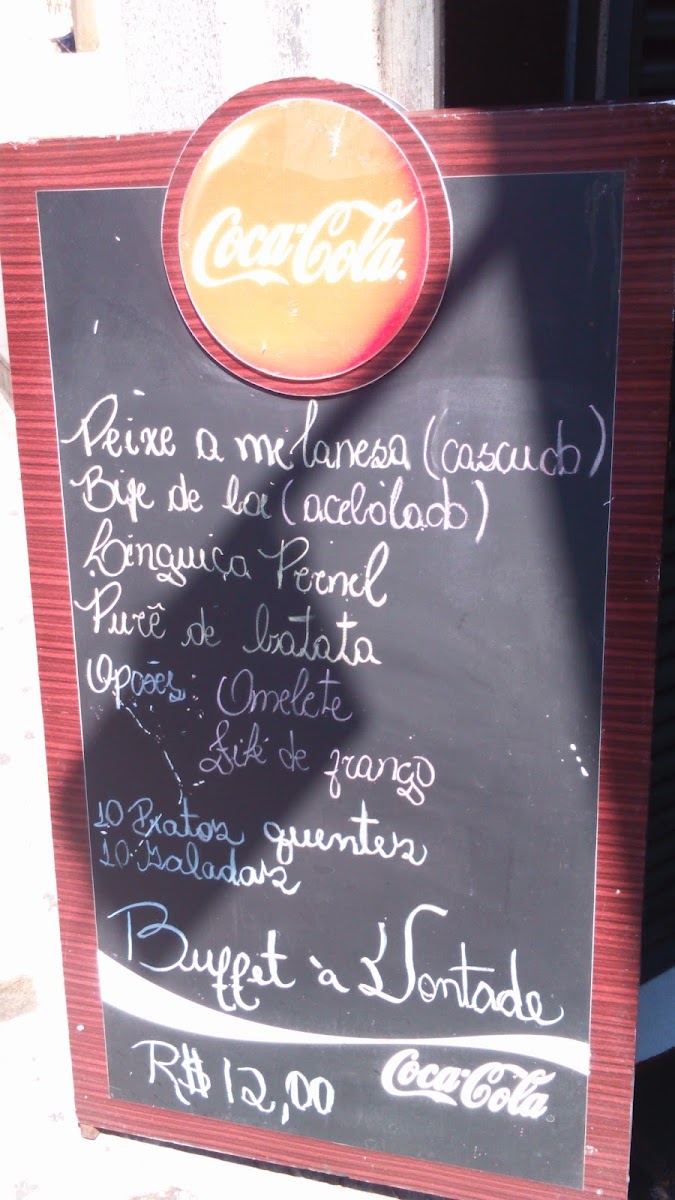 Coca-Cola
Peixe a melanesa (cascudo)
Bife de boi (acebolado)
Linguiça Pernil
Purê de batata
Opções: Omelete
Filé de frango
10 Pratos quentes
10 Saladas
Buffet à Vontade
R$ 12,00
Coca-Cola